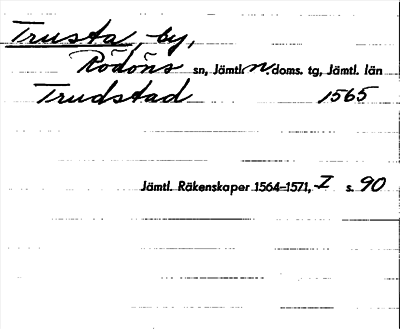 Trusta, by,
Rödöns sn, Jämtl. n doms. tg, Jämtl. län
Trudstad 1565
Jämtl. Räkenskaper 1564–1571, I s. 90